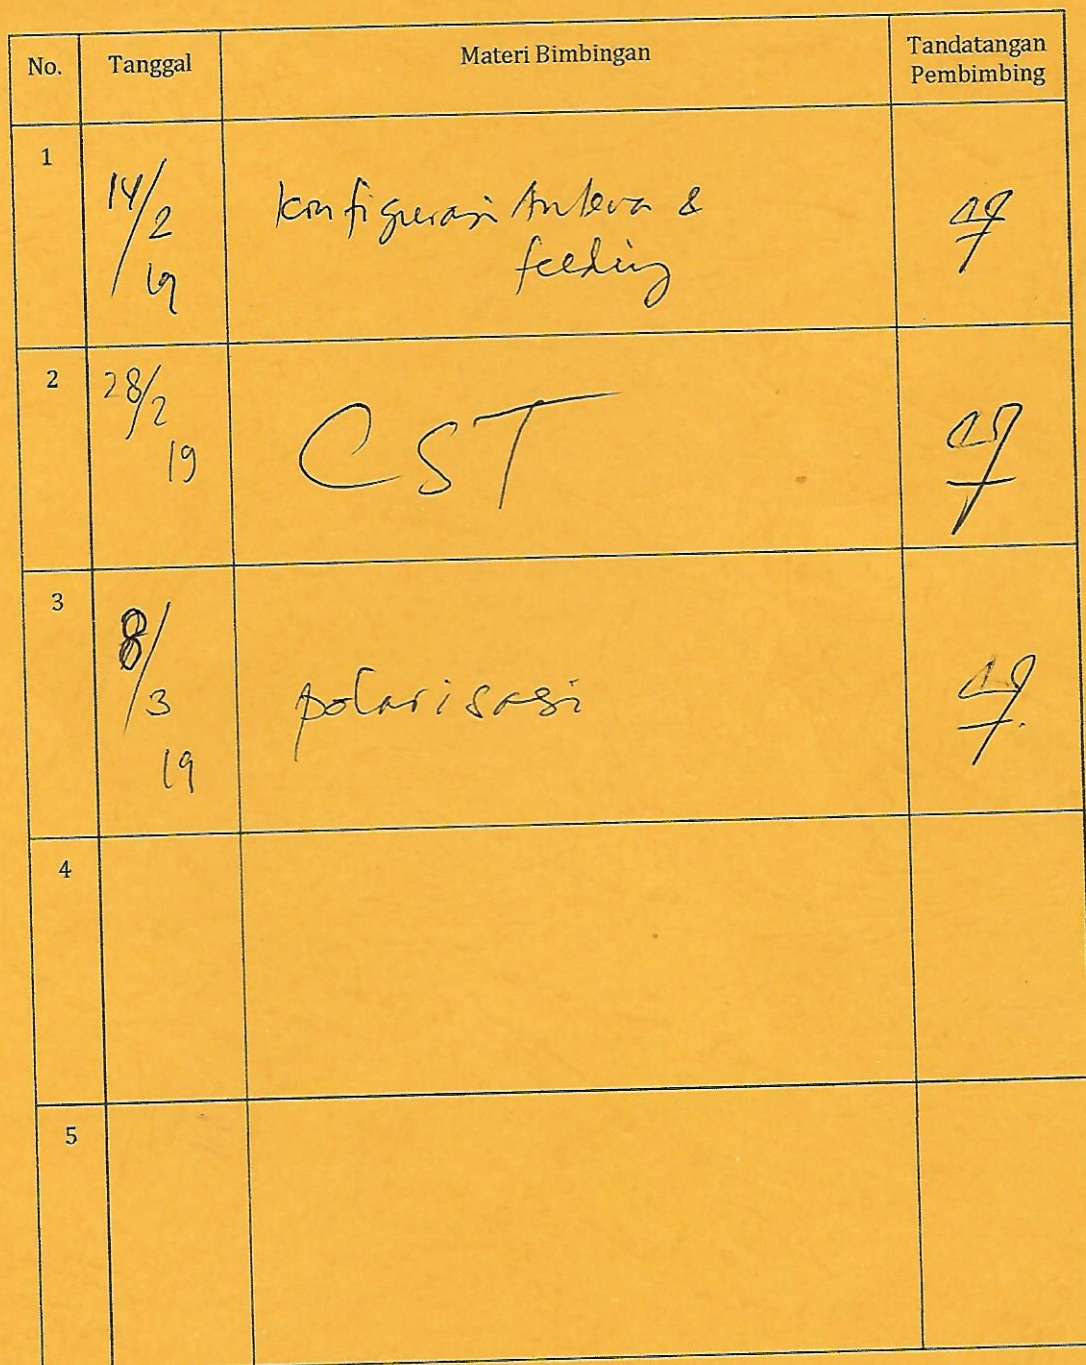 No. Tanggal Materi Bimbingan Tandatangan
Pembimbing
1
14/2
19
konfigurasi Antena &
feeding
2
28/2
19
CST
3
8/3
19
polarisasi
4
5